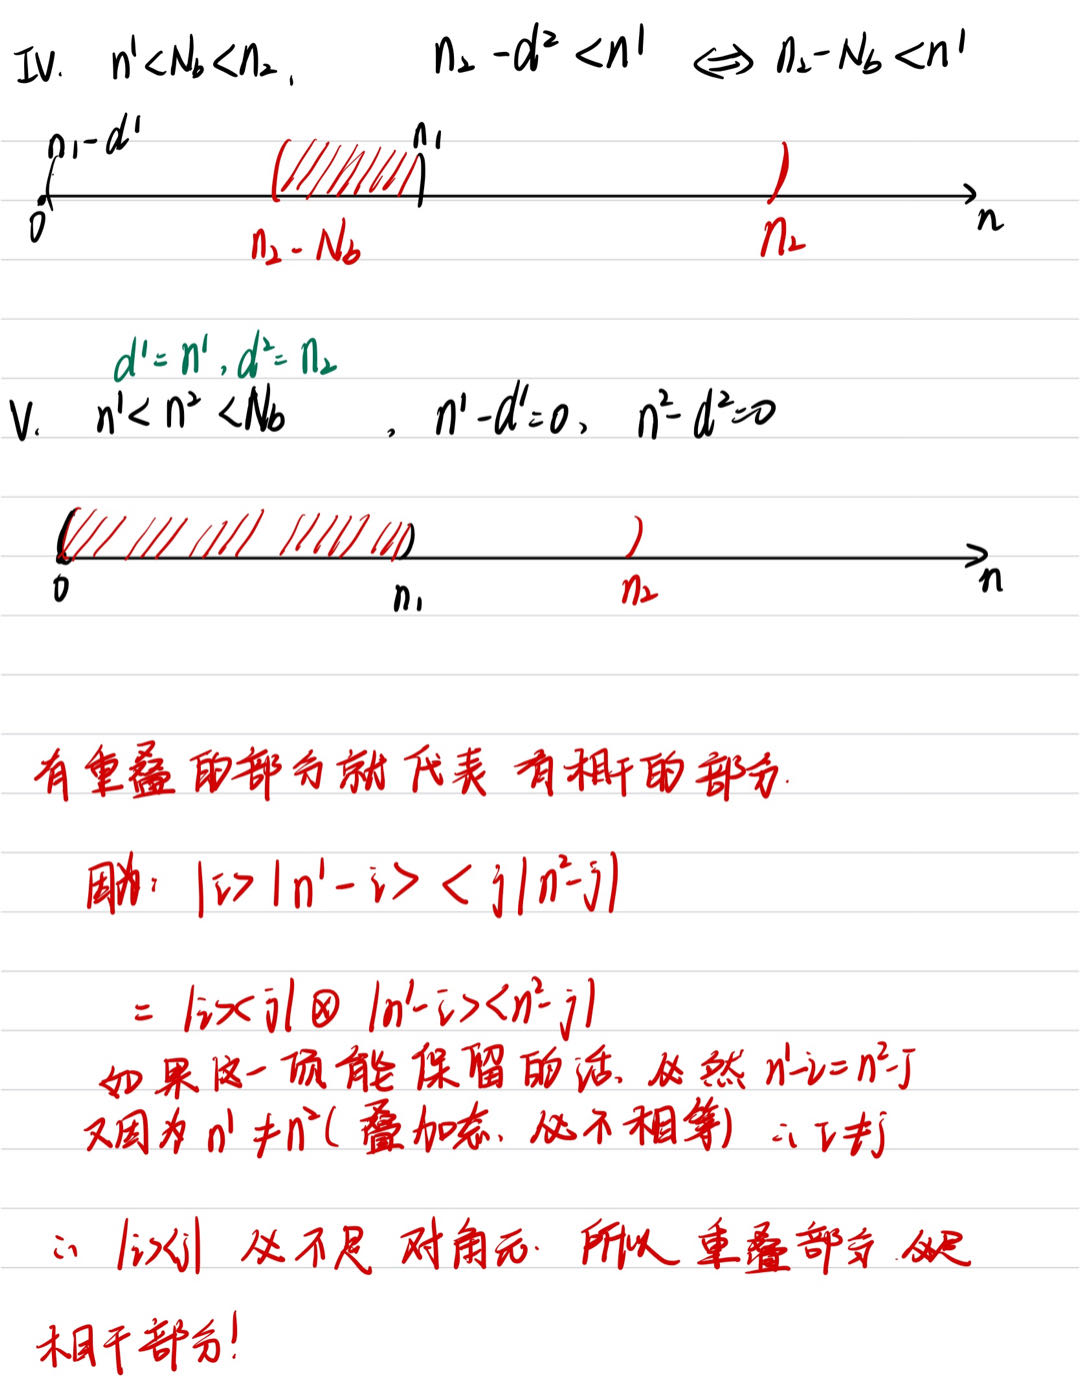 IV. n¹<N_b<n₂, n₂-d²<n¹ ⟺ n₂-N_b<n¹
n₁-d¹ n₁
0 n₂-N_b n₂ n
d¹=n¹, d²=n₂
V. n¹<n²<N_b , n¹-d¹=0, n²-d²=0
0 n₁ n₂ n
有重叠的部分就代表有相干的部分.
因为: |i>|n¹-i><j|n²-j|
= |i><j|⊗|n¹-i><n²-j|
如果这一项能保留的话、必然 n¹-i=n²-j
又因为 n¹≠n²(叠加态、必不相等) ∴ i≠j
∴ |i><j| 必不是对角元. 所以重叠部分必是
相干部分!